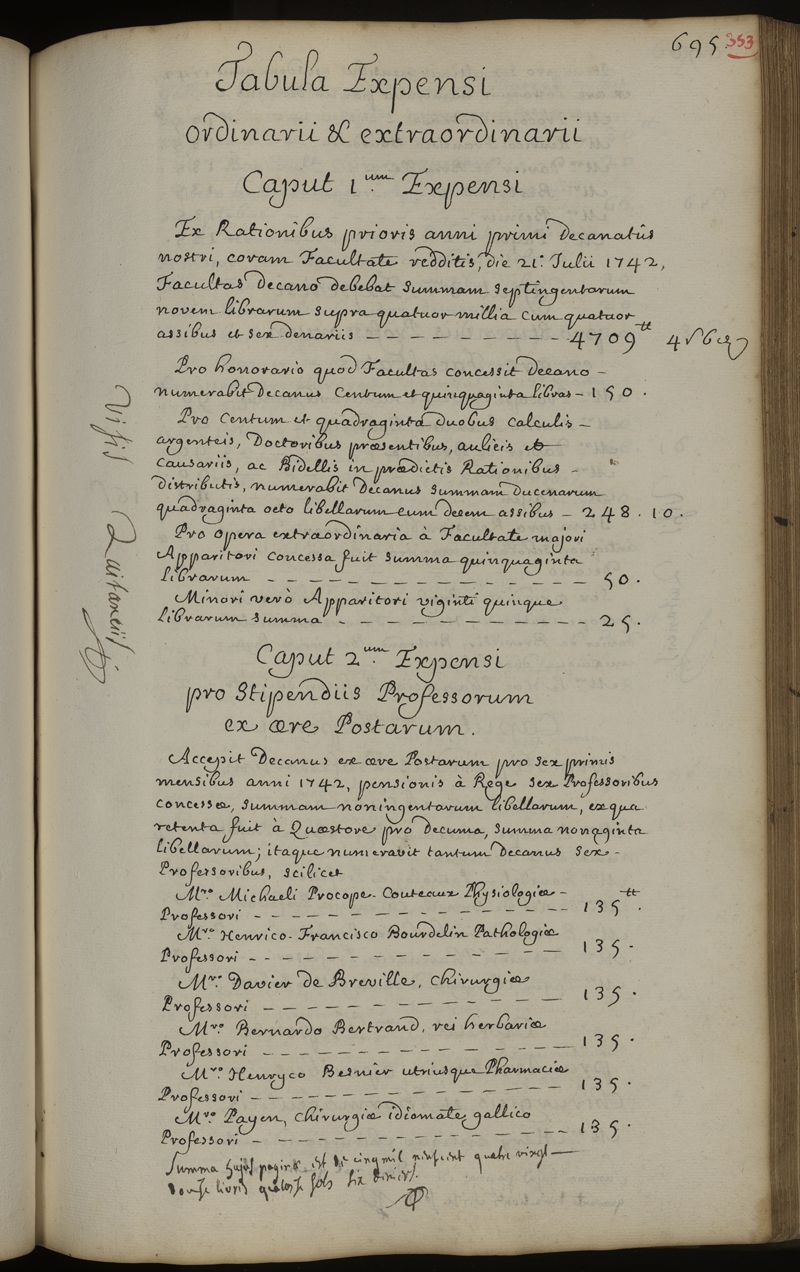 695. 353
Tabula Expensi
ordinarii & extraordinarii
Caput 1um. Expensi
Ex Rationibus prioris anni primi Decanatûs
nostri, coram Facultate redditis, die 21a. Julii 1742,
Facultas Decano debebat summam septingentarum
novem librarum supra quatuor millia cum quatuor
assibus et sex denariis — 4709tt 4s 6d
Pro honorario quod Facultas concessit Decano —
numerabit Decanus Centum et quinquaginta libras — 150.
Pro Centum et quadraginta duobus calculis —
argenteis, Doctoribus præsentibus, aulicis et
Causariis, ac Bidellis in prædictis Rationibus —
distributis, numerabit Decanus summam ducenarum
quadraginta octo libellarum cum decem assibus — 248. 10.
Pro opera extraordinaria à Facultate majori
Apparitori concessa fuit summa quinquaginta
librarum — 50.
Minori verò Apparitori viginti quinque
librarum summa — 25.
Visis Quitanciis
Caput 2um. Expensi
pro Stipendiis Professorum
ex ære Postarum.
Accepit Decanus ex ære Postarum pro sex primis
mensibus anni 1742, pensionis à Rege sex Professoribus
concessæ, summam noningentarum libellarum, ex qua
retenta fuit à Quæstore pro decuma, summa nonaginta
libellarum; itaque numeravit tantum Decanus sex —
Professoribus, scilicet
Mro. Michaeli Procope-Couteaux Physiologiæ —
Professori — 135tt.
Mro. Henrico-Francisco Bourdelin Pathologiæ
Professori — 135.
Mro. Davier de Breville, chirurgiæ
Professori — 135.
Mro. Bernardo Bertrand, rei herbariæ
Professori — 135.
Mro. Henryco Besnier utriusque Pharmaciæ
Professori — 135.
Mro. Payen, chirurgiæ idiomate gallico
Professori — 135.
Summa hujus paginæ est de cinq mil neufcent quatre vingt —
douze livres quatorze sols six deniers.